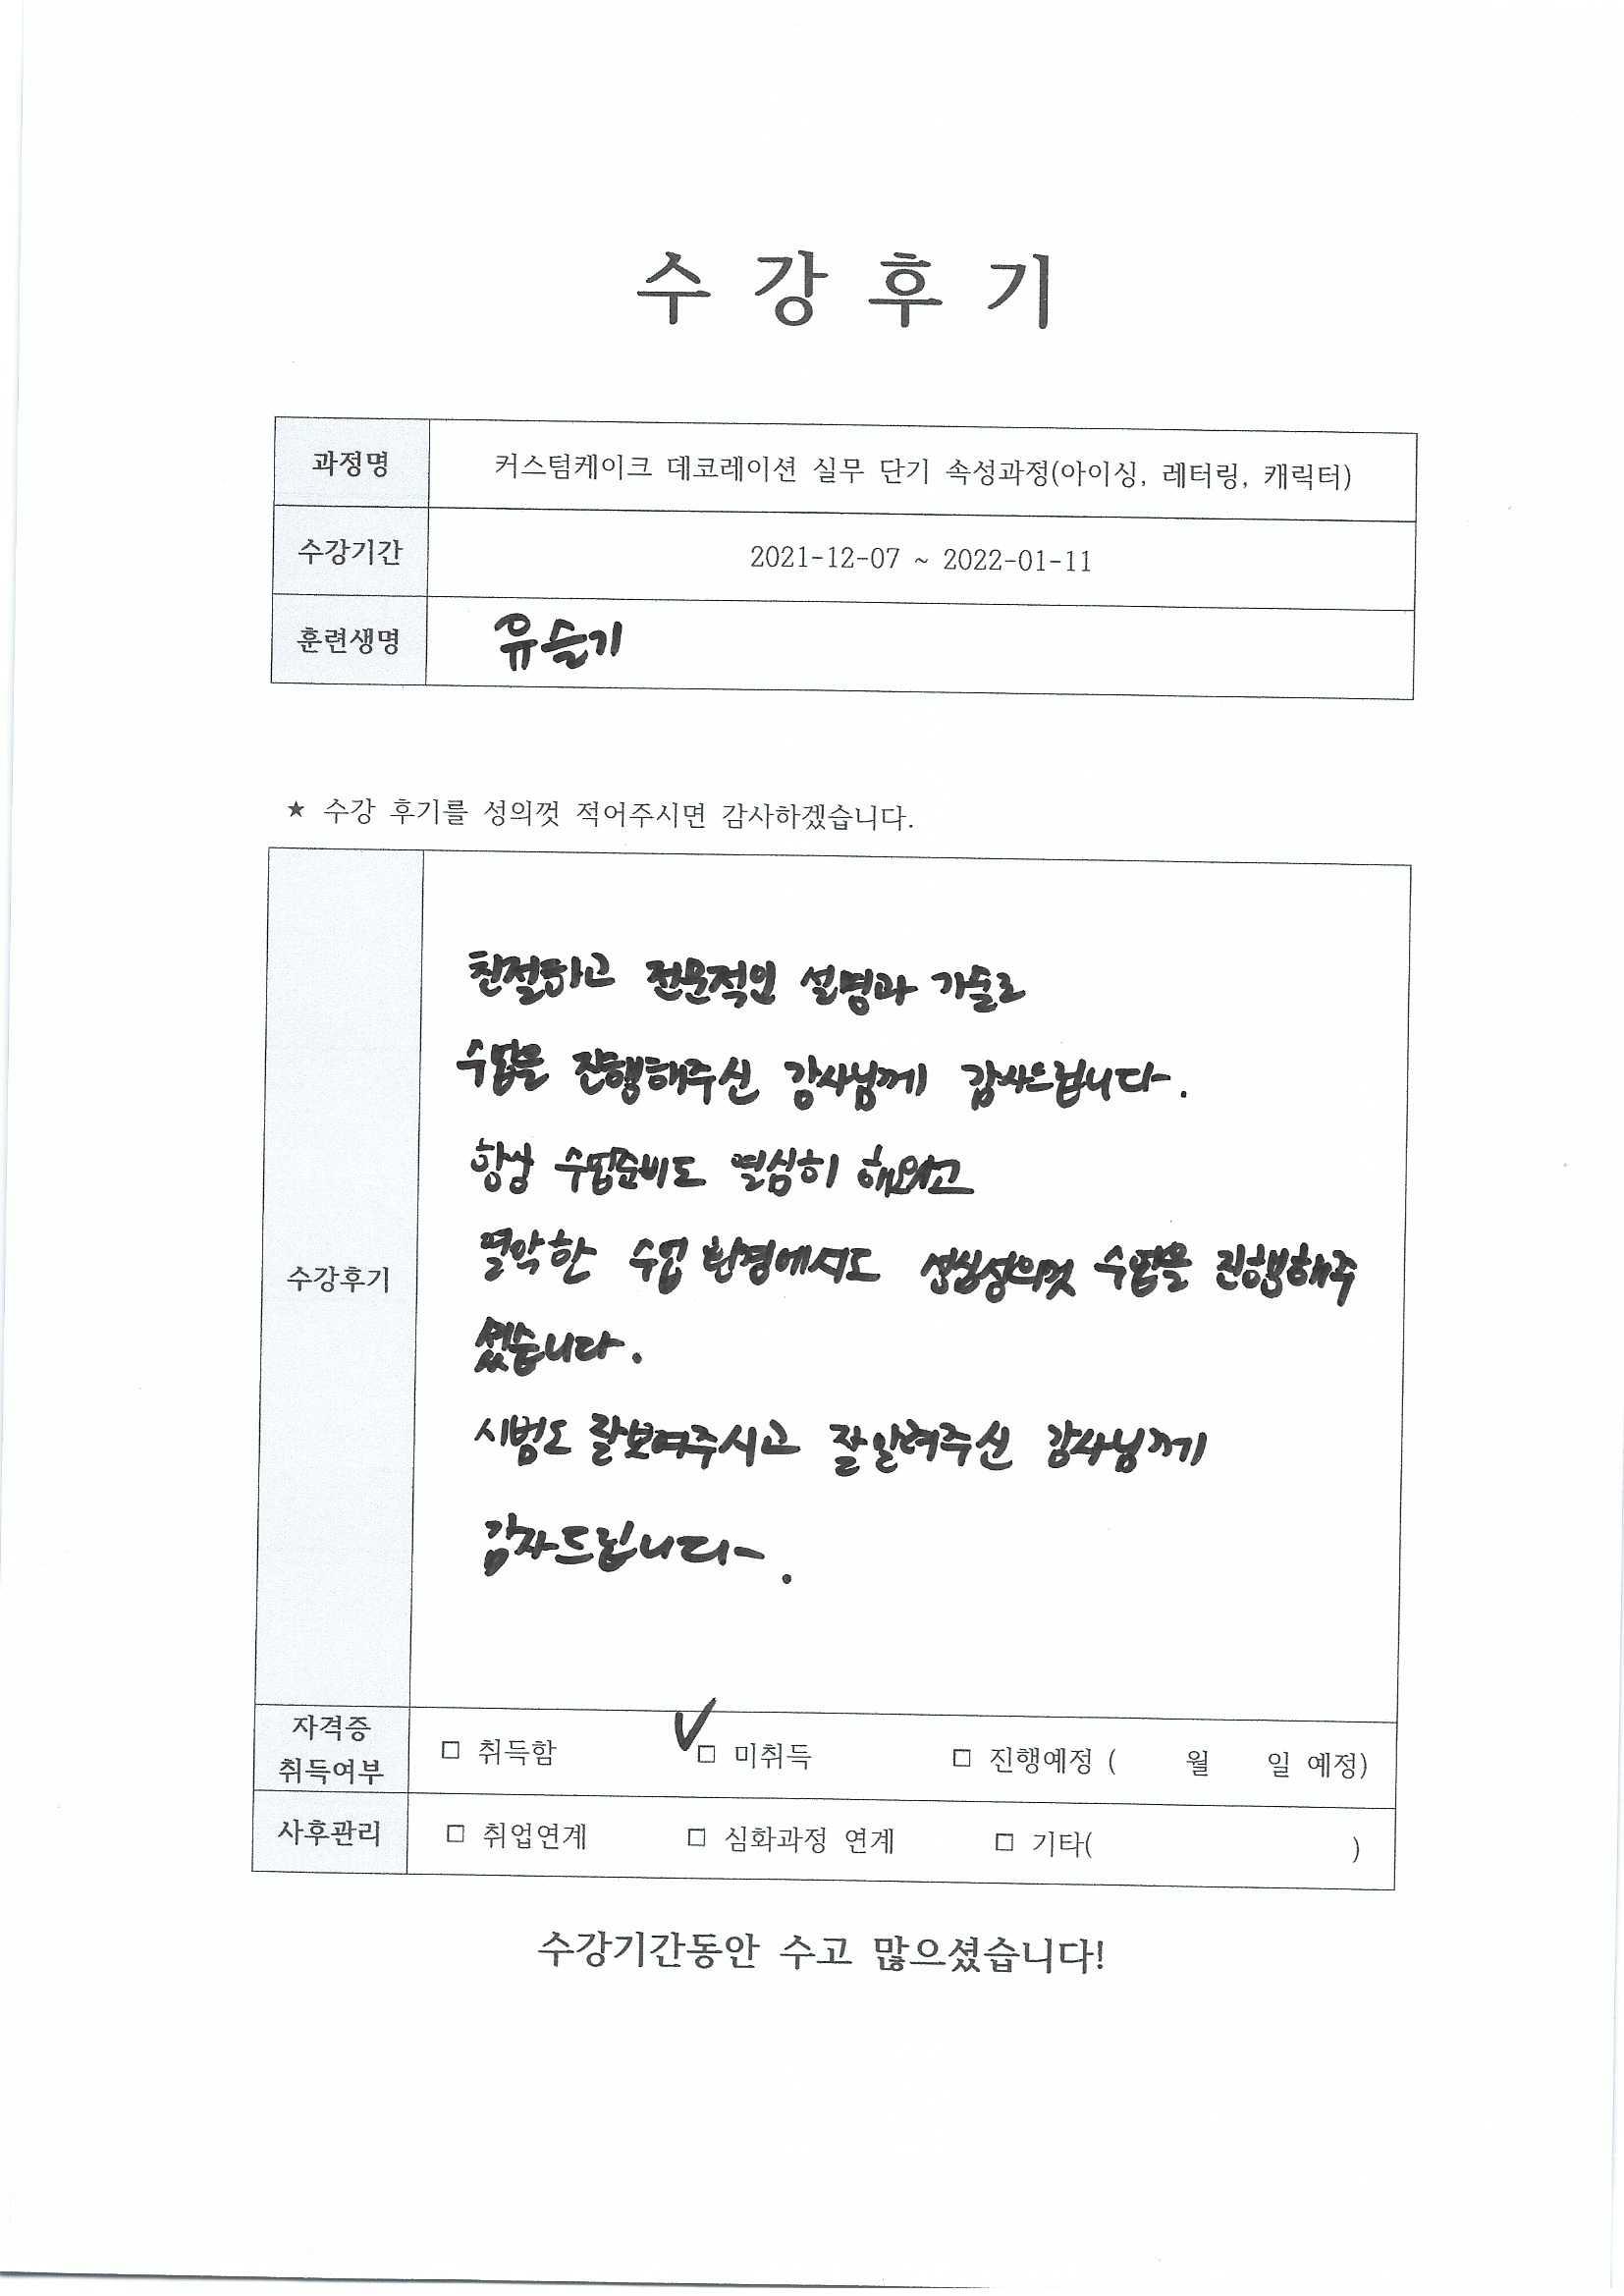 수 강 후 기
과정명 커스텀케이크 데코레이션 실무 단기 속성과정(아이싱, 레터링, 캐릭터)
수강기간 2021-12-07 ~ 2022-01-11
훈련생명 유슬기
★ 수강 후기를 성의껏 적어주시면 감사하겠습니다.
수강후기
친절하고 전문적인 설명과 기술로
수업을 진행해주신 강사님께 감사드립니다.
항상 수업준비도 열심히 해오시고
열악한 수업 환경에서도 성심성의껏 수업을 진행해주
셨습니다.
시범도 잘보여주시고 잘알려주신 강사님께
감사드립니다.
자격증
취득여부
□ 취득함 ✓□ 미취득 □ 진행예정 ( 월 일 예정)
사후관리 □ 취업연계 □ 심화과정 연계 □ 기타( )
수강기간동안 수고 많으셨습니다!